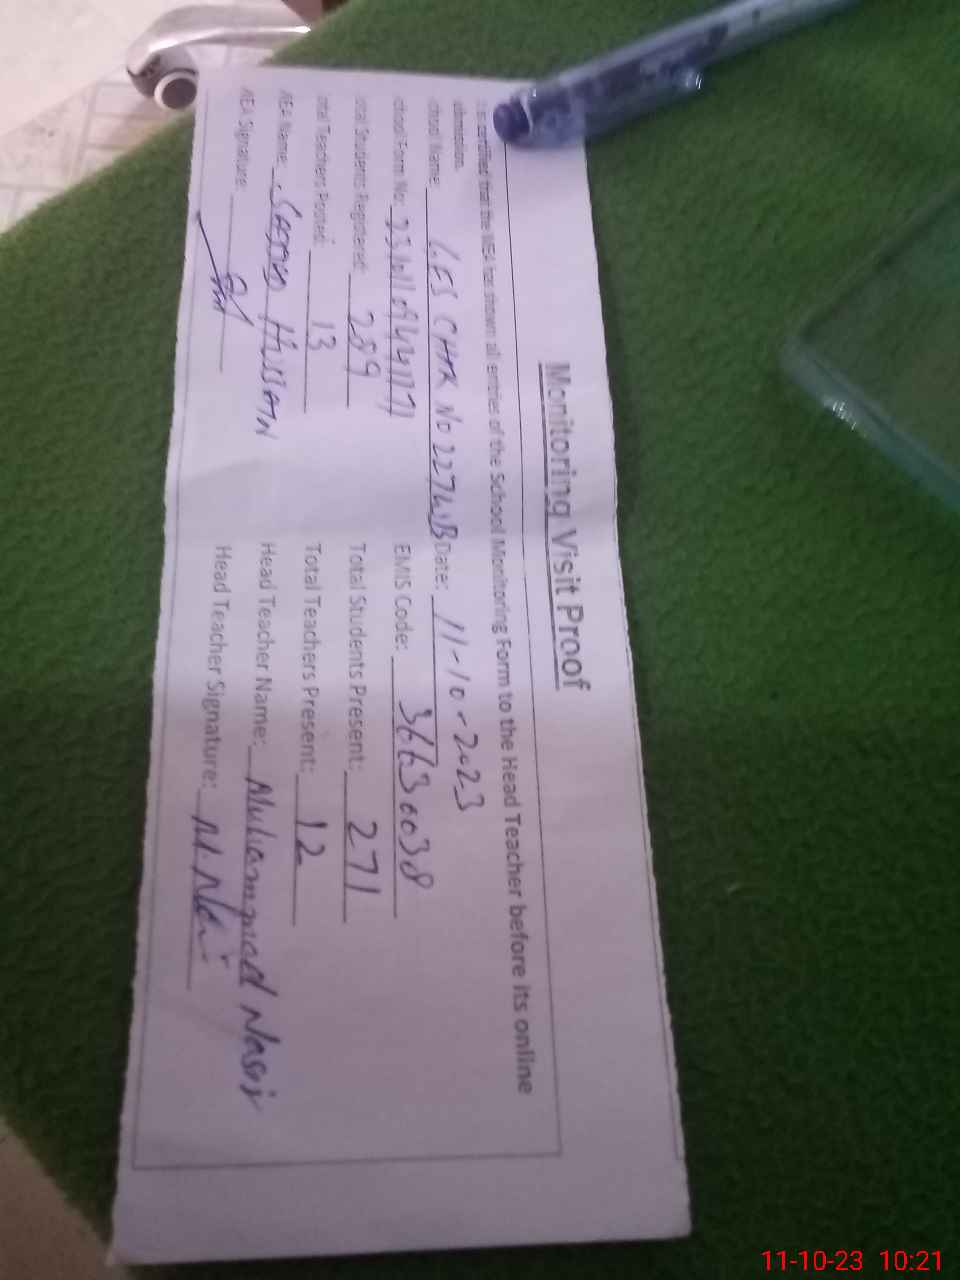 Monitoring Visit Proof
certified that the MEA has shown all entries of the School Monitoring Form to the Head Teacher before its online
submission.
School Name: GES CHAK No 227 WB Date: 11-10-2023
School Form No: EMIS Code: 36630038
Total Students Registered: 289 Total Students Present: 271
Total Teachers Posted: 13 Total Teachers Present: 12
MEA Name: HUSSAIN Head Teacher Name: Muhammad Nasir
MEA Signature: Head Teacher Signature:
11-10-23 10:21